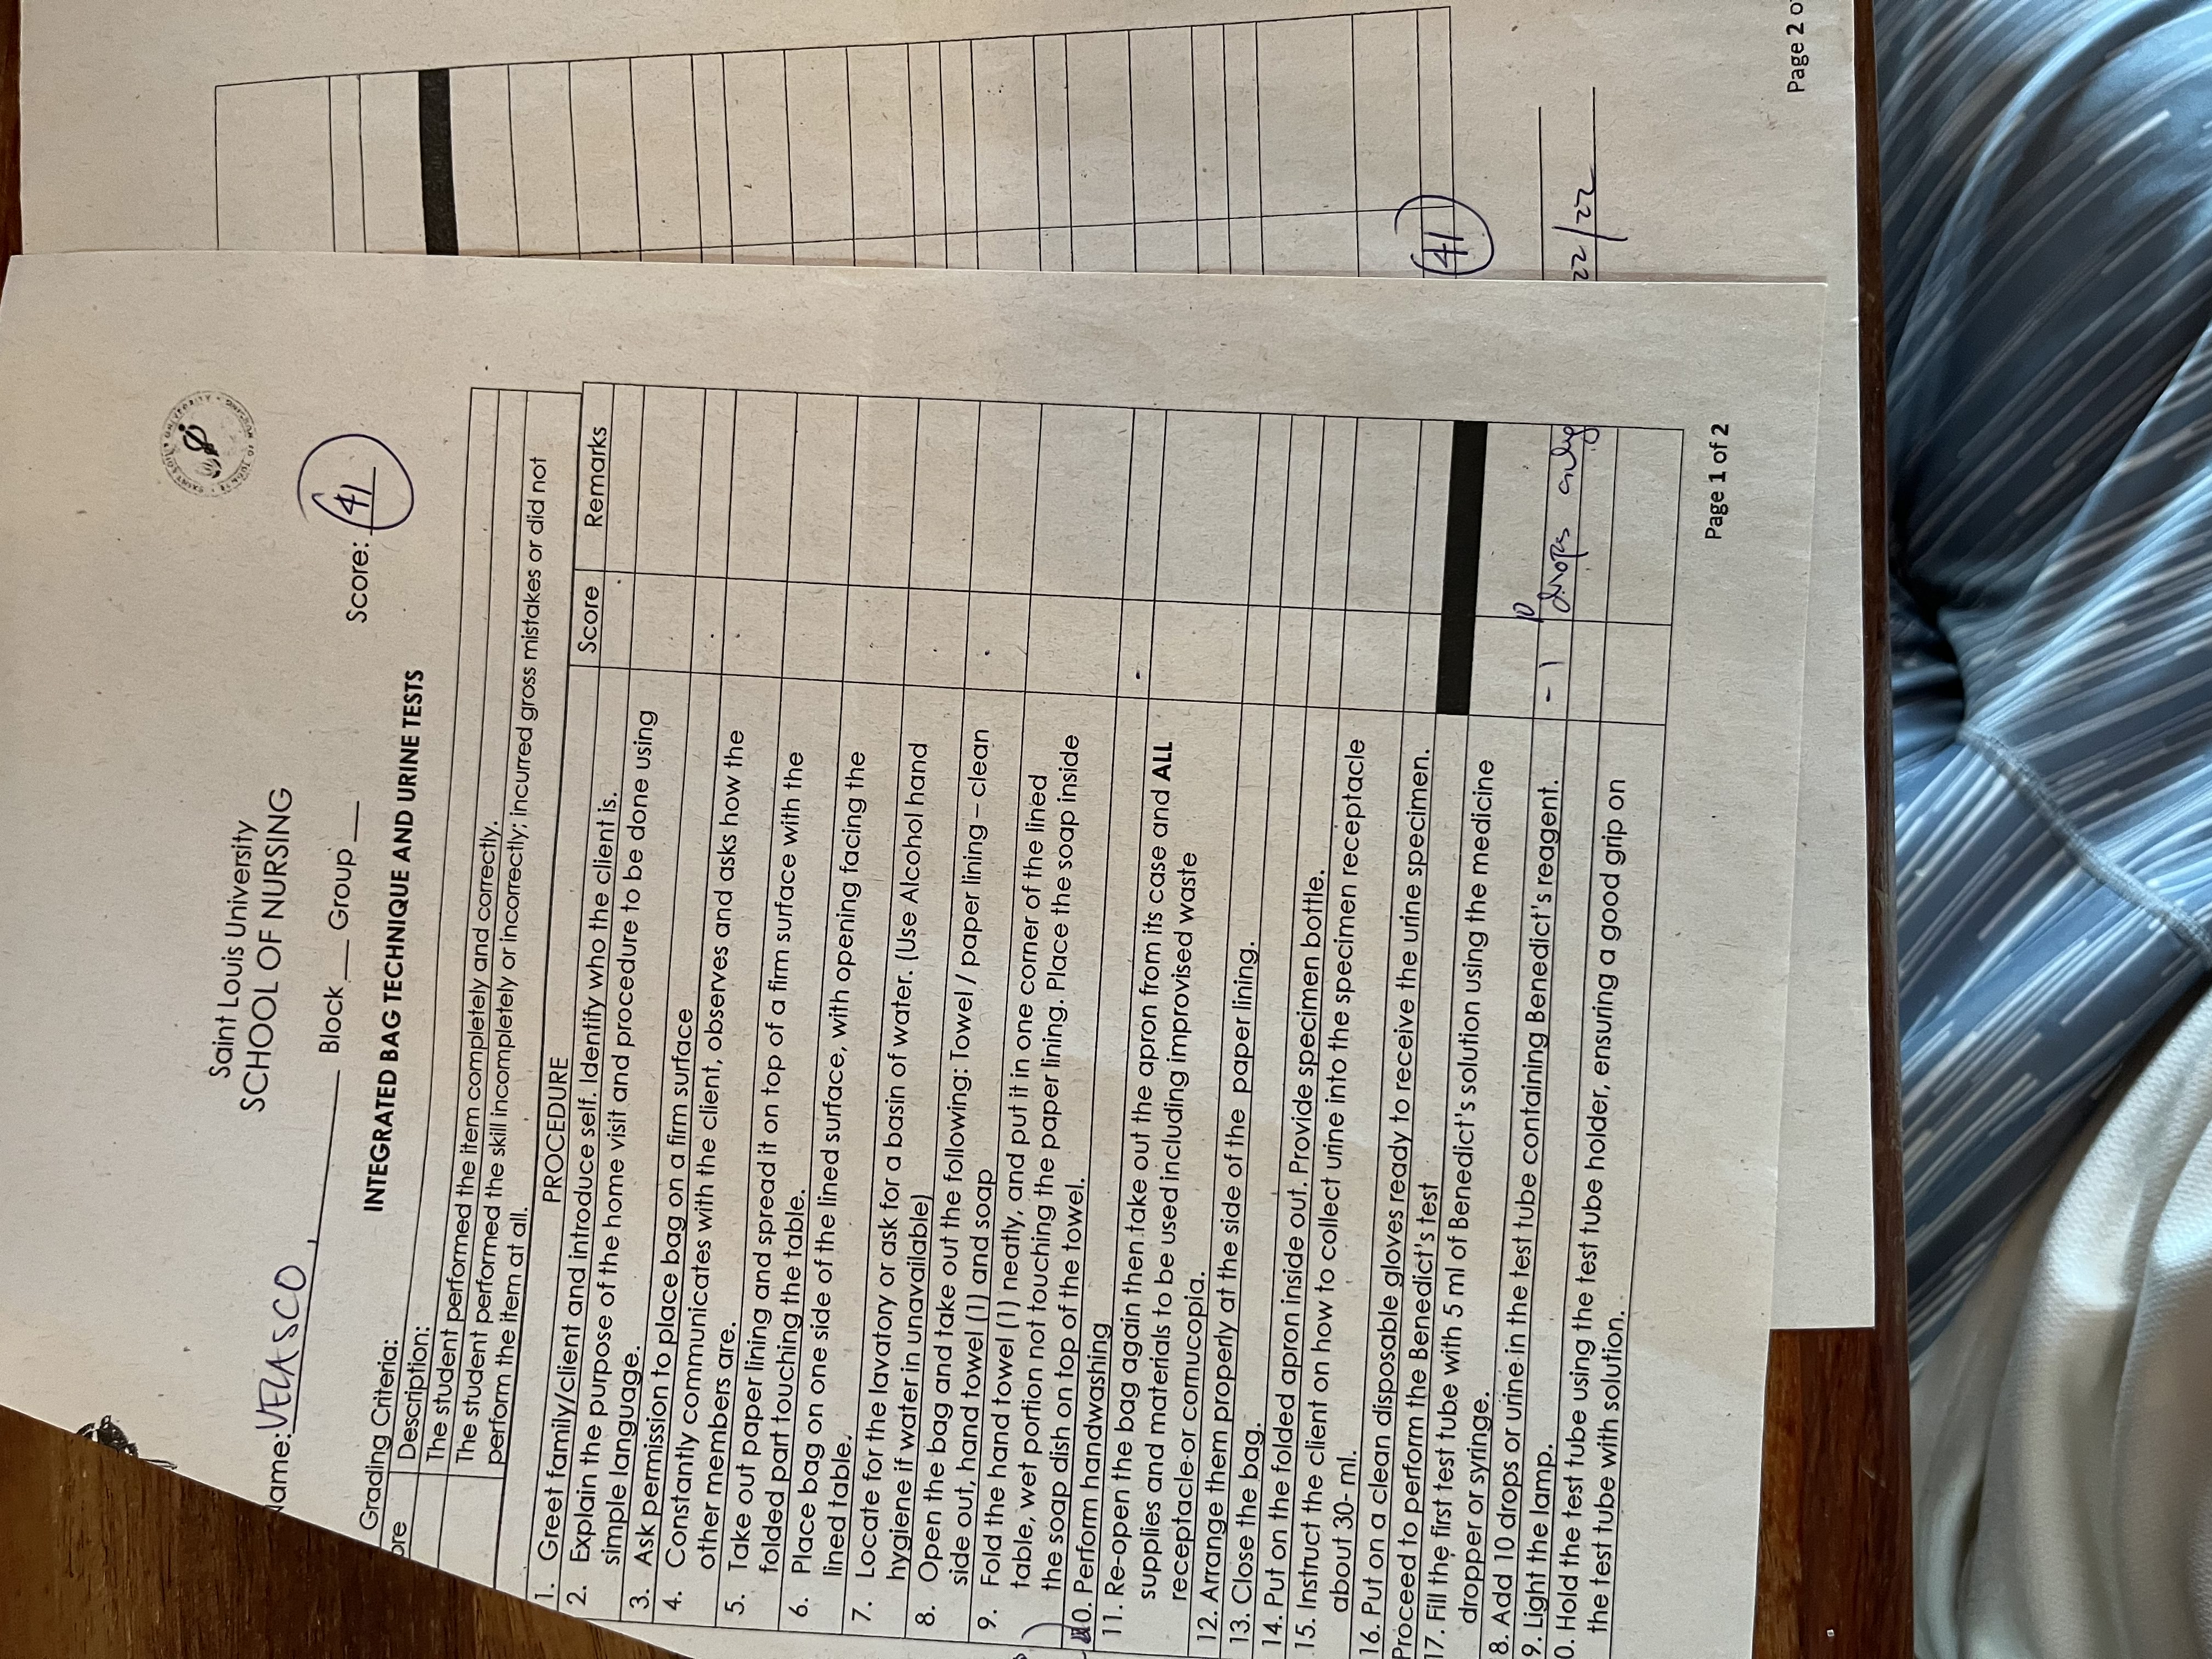 Saint Louis University
SCHOOL OF NURSING
SAINT LOUIS UNIVERSITY
Name: VELASCO, Block ___ Group ___
Score: 41
INTEGRATED BAG TECHNIQUE AND URINE TESTS
Grading Criteria:
ore Description:
The student performed the item completely and correctly.
The student performed the skill incompletely or incorrectly; incurred gross mistakes or did not
perform the item at all.
PROCEDURE Score Remarks
1. Greet family/client and introduce self. Identify who the client is.
2. Explain the purpose of the home visit and procedure to be done using
simple language.
3. Ask permission to place bag on a firm surface
4. Constantly communicates with the client, observes and asks how the
other members are.
5. Take out paper lining and spread it on top of a firm surface with the
folded part touching the table.
6. Place bag on one side of the lined surface, with opening facing the
lined table.
7. Locate for the lavatory or ask for a basin of water. (Use Alcohol hand
hygiene if water in unavailable)
8. Open the bag and take out the following: Towel / paper lining – clean
side out, hand towel (1) and soap
9. Fold the hand towel (1) neatly, and put it in one corner of the lined
table, wet portion not touching the paper lining. Place the soap inside
the soap dish on top of the towel.
10. Perform handwashing
11. Re-open the bag again then take out the apron from its case and ALL
supplies and materials to be used including improvised waste
receptacle or cornucopia.
12. Arrange them properly at the side of the paper lining.
13. Close the bag.
14. Put on the folded apron inside out. Provide specimen bottle.
15. Instruct the client on how to collect urine into the specimen receptacle
about 30- ml.
16. Put on a clean disposable gloves ready to receive the urine specimen.
Proceed to perform the Benedict's test
17. Fill the first test tube with 5 ml of Benedict's solution using the medicine
dropper or syringe.
8. Add 10 drops or urine in the test tube containing Benedict's reagent. - 1 10 drops only
9. Light the lamp.
0. Hold the test tube using the test tube holder, ensuring a good grip on
the test tube with solution.
Page 1 of 2
41
22/22
Page 2 o